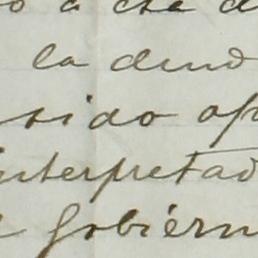 o a che d
la deud
sido op
interpretad
Gobiern